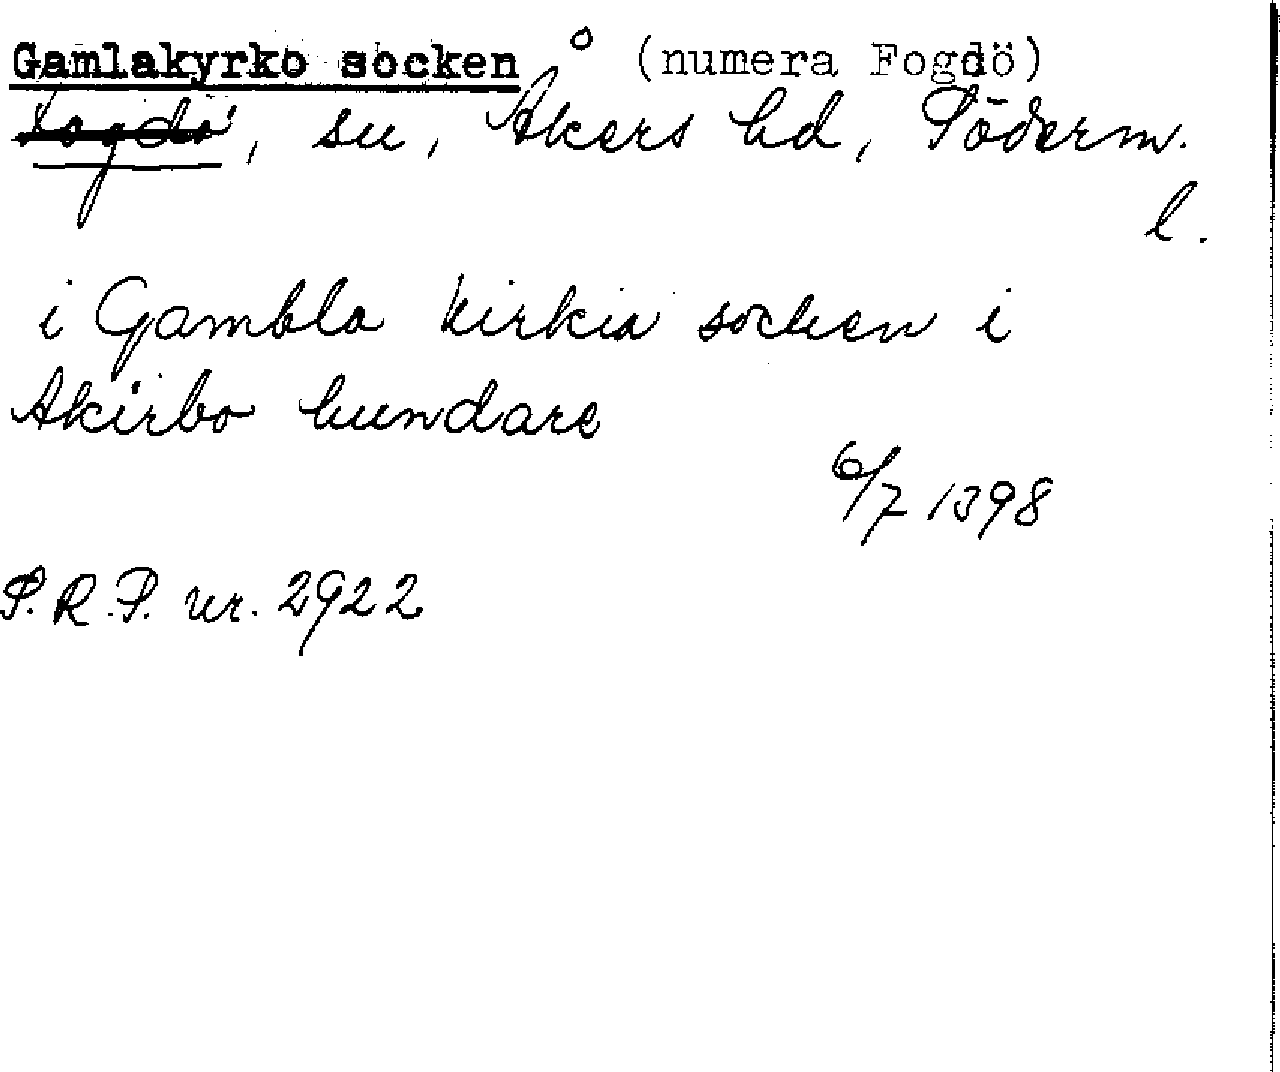 Gamlakyrko socken (numera Fogdö)
Fogdö, sn, Åkers hd, Söderm.
l.
i Gambla kirkia sochen i
Akirbo hundare
6/7 1398
S.R.P. nr. 2922